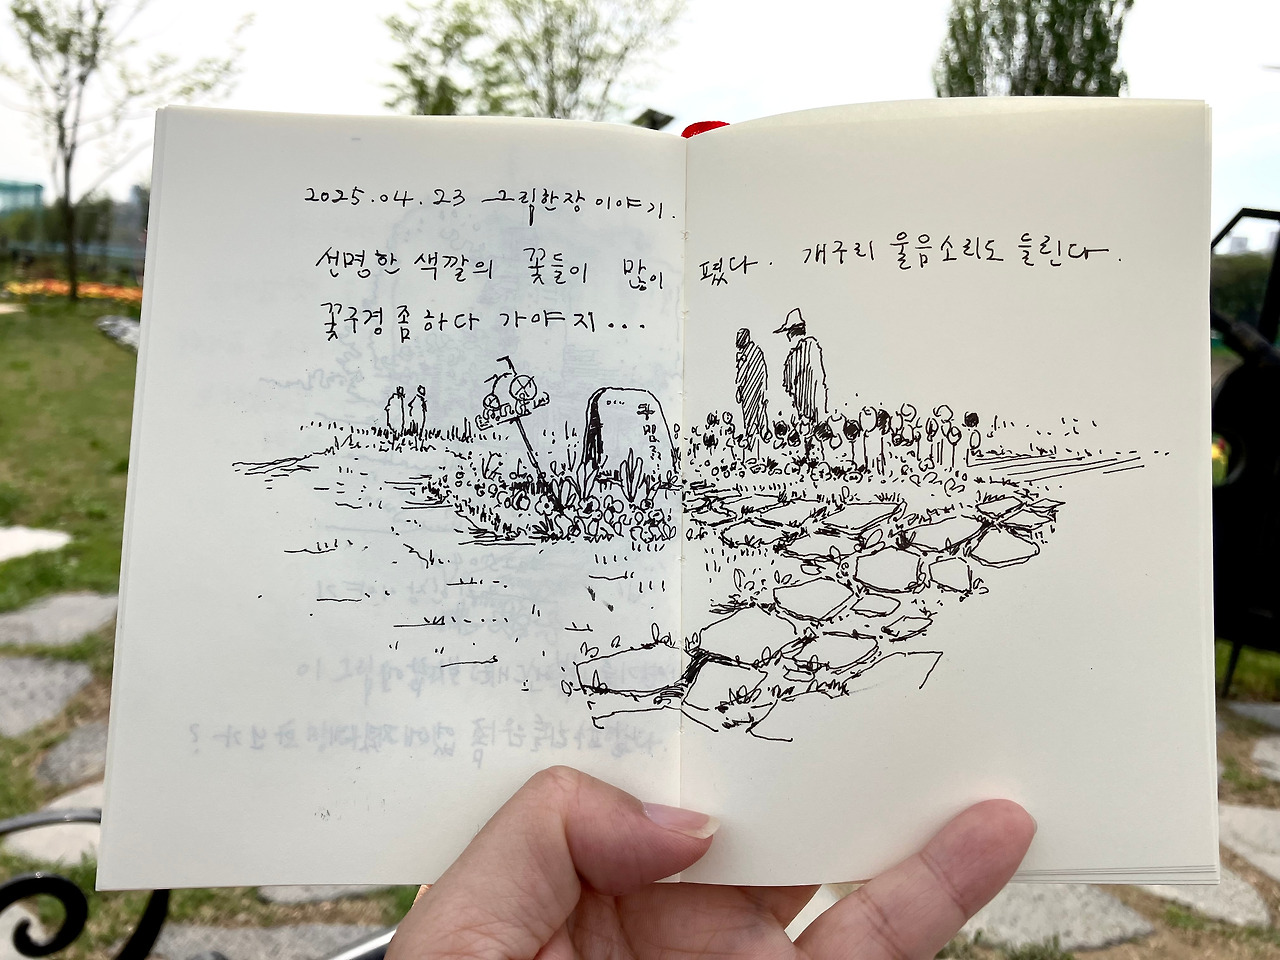 2025.04.23 그림한장 이야기.
선명한 색깔의 꽃들이 많이 폈다. 개구리 울음소리도 들린다.
꽃구경 좀 하다 가야지...